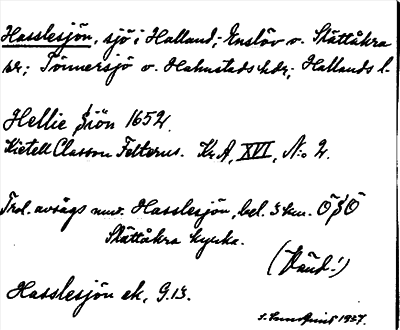 Hasslesjön, sjö i Halland; Enslöv o. Slättåkra
sr; Tönnersjö o. Halmstads hdr; Hallands l.
Hellie Siön 1652.
Kietell Classon Felterus. Kr A, XVI, N:o 2.
Trol. avsågs nuv. Hasslesjön, bel. 3 km. ÖSÖ
Slättåkra kyrka.
(Känd!)
Hasslesjön ek. G.13.
1927.